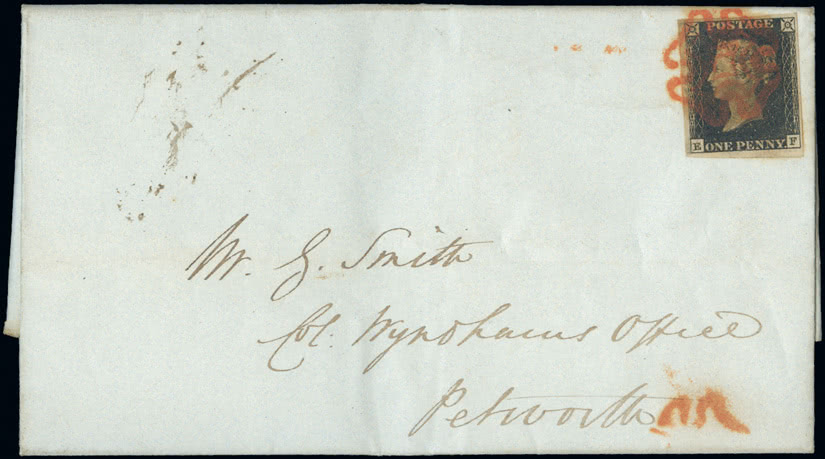 POSTAGE
E ONE PENNY F
Mr. G. Smith
Col. Wyndhams Office
Petworth